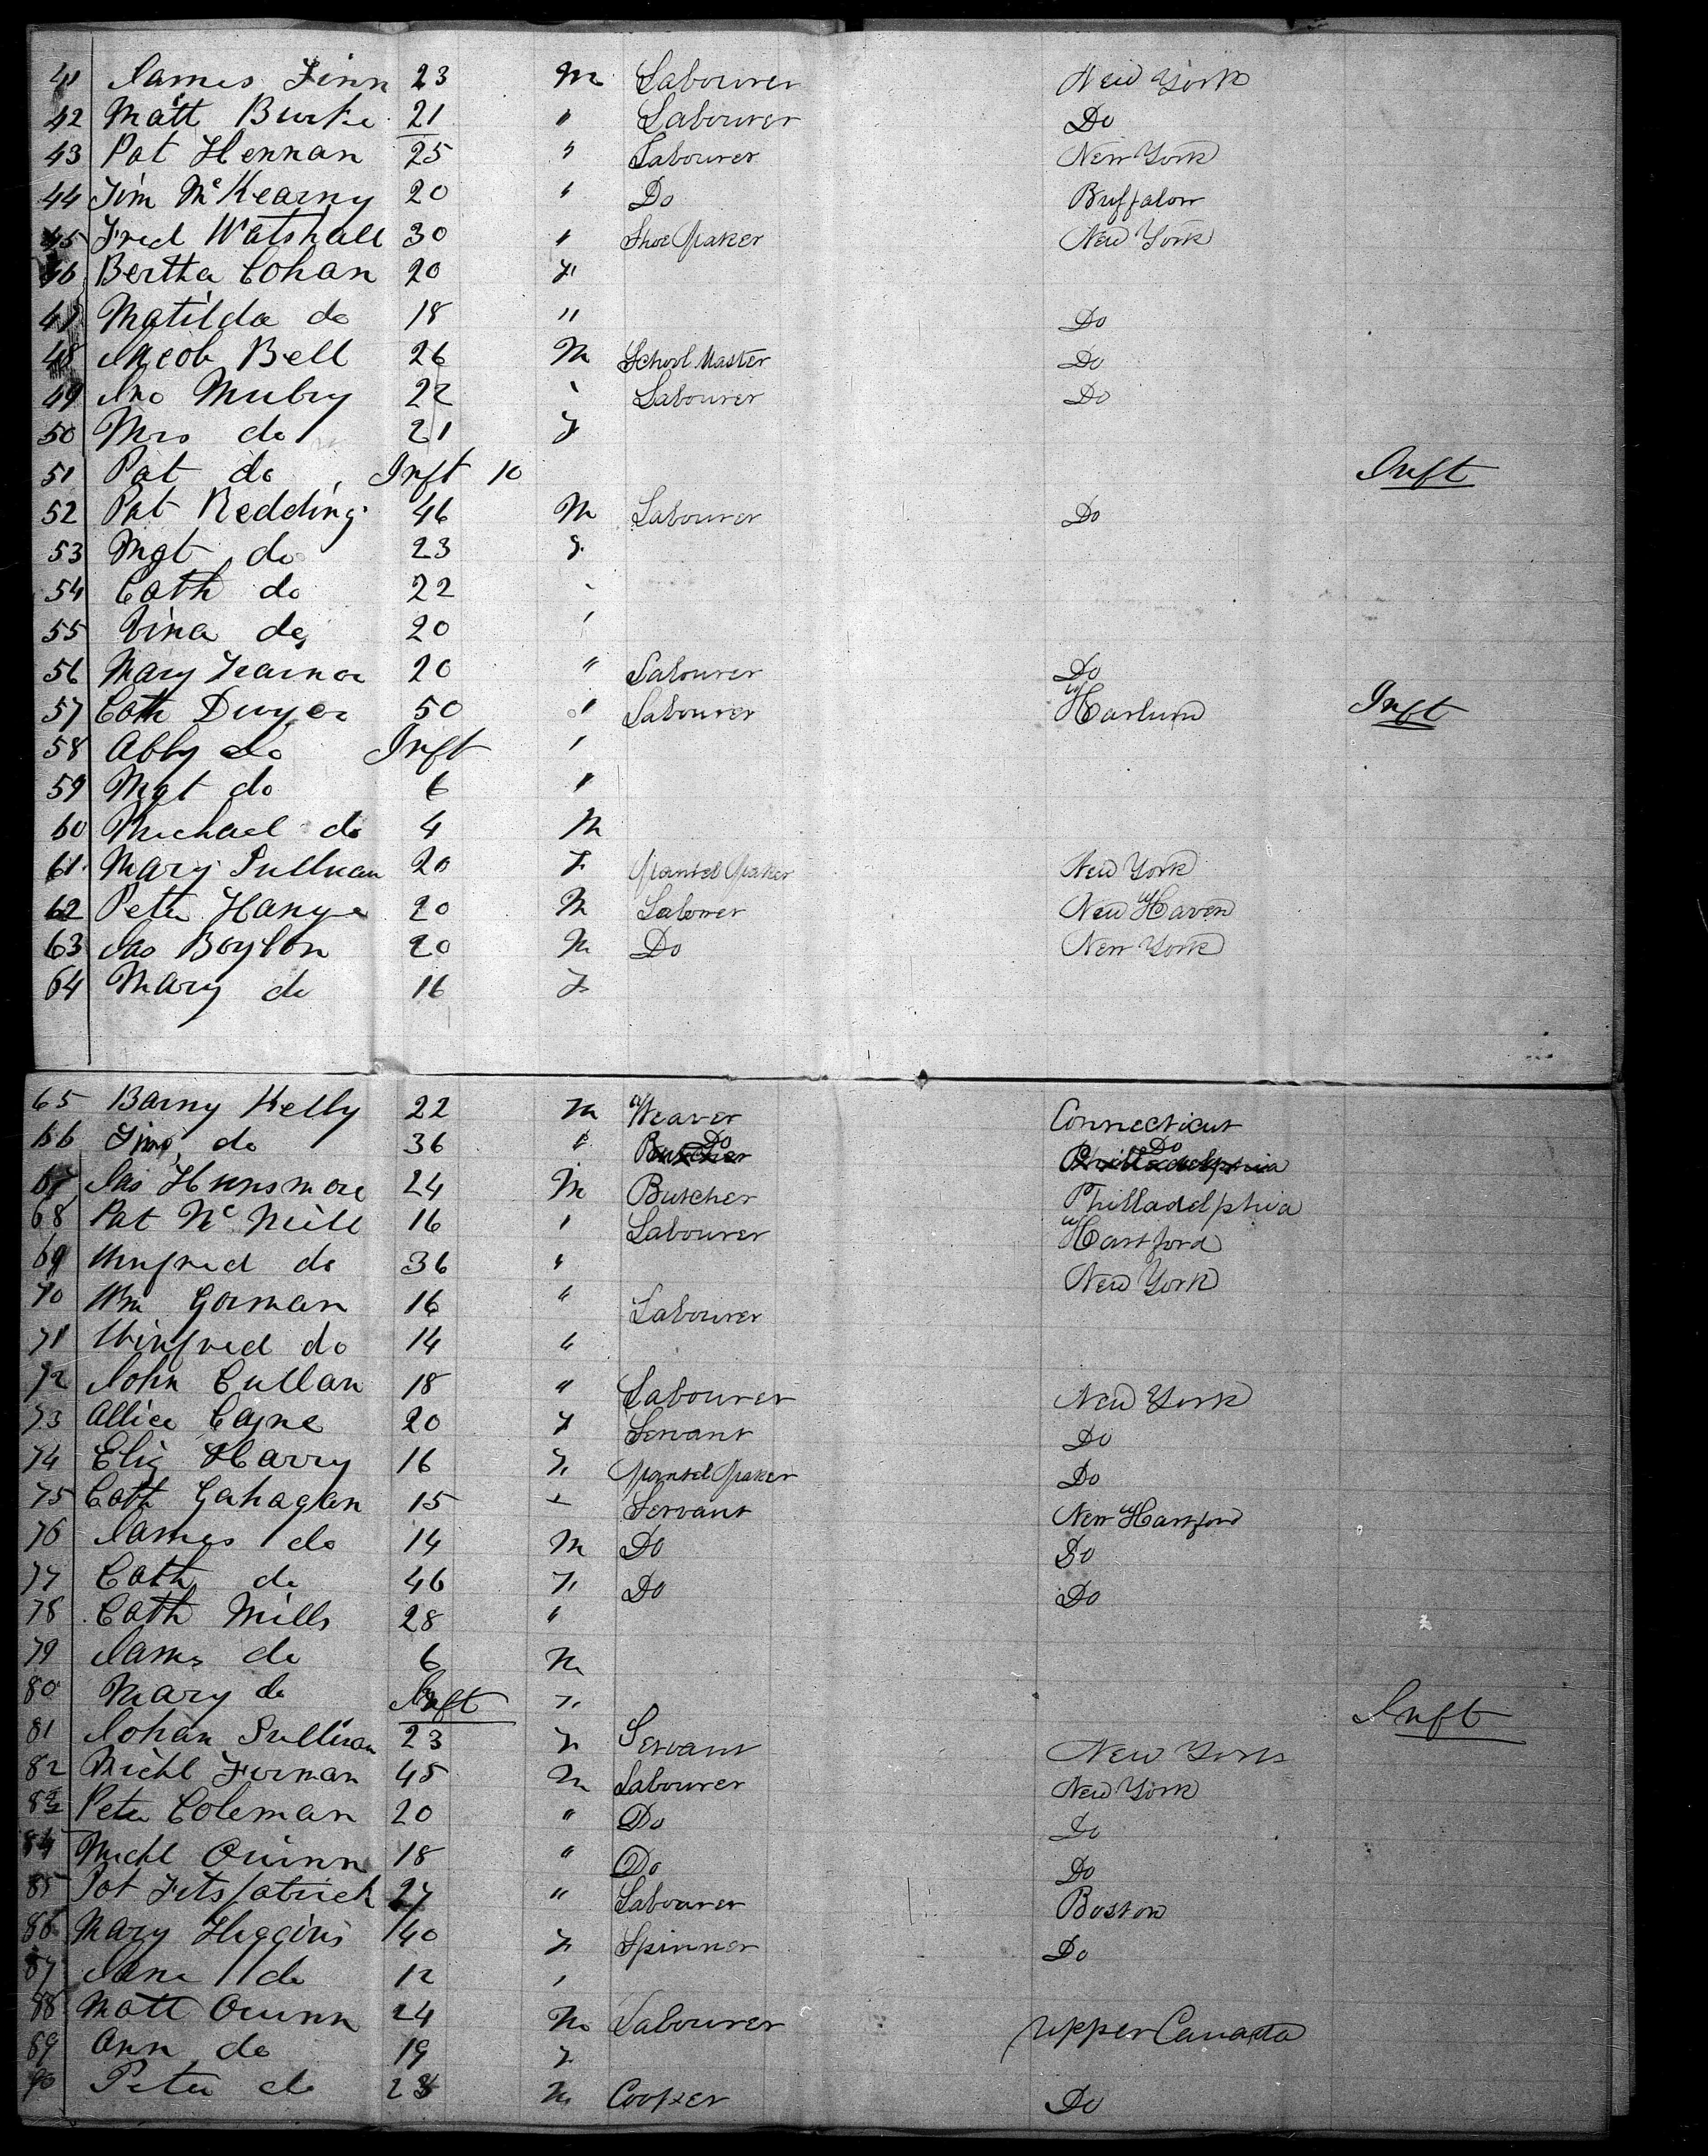 41 James Finn 23 M Labourer New York
42 Matt Burke 21 " Labourer Do
43 Pat Hennan 25 " Labourer New York
44 Jim McKearny 20 " Do Buffalow
45 Fred Watshall 30 " Shoe Maker New York
46 Bertha Cohan 20 F
47 Matilda do 18 " Do
48 Jacob Bell 26 M School Master Do
49 Jno Mulry 22 " Labourer Do
50 Mrs do 21 F
51 Pat do Inft 10 Inft
52 Pat Redding 46 M Labourer Do
53 Mgt do 23 F
54 Cath do 22 "
55 do 20 "
56 Mary 20 " Labourer Do
57 Cath Dwyer 50 " Labourer Harlum Inft
58 Abby do Inft "
59 Mgt do 6 "
60 Michael do 4 M
61 Mary Sullivan 20 F Mantel Maker New York
62 Peter 20 M Labourer New Haven
63 Jas Boylon 20 M Do New York
64 Mary do 16 F
65 Barny Kelly 22 M Weaver Connecticut
66 do 36 " Do Do
67 Jas Hunsmore 24 M Butcher Philladelphia
68 Pat McNeill 16 " Labourer Hartford
69 Winfred do 36 " New York
70 Wm Gorman 16 " Labourer
71 Winfred do 14 "
72 John Cullan 18 " Labourer New York
73 Allice Cayne 20 F Servant Do
74 Eliz Harry 16 F Mantel Maker Do
75 Cath Gahagan 15 " Servant New Hartford
76 James do 14 M Do Do
77 Cath do 46 F Do Do
78 Cath Mills 28 "
79 James do 6 M
80 Mary do Inft F Inft
81 Johan Sullivan 23 F Servant New York
82 Michl Furman 45 M Labourer New York
83 Peter Coleman 20 " Do Do
84 Michl Quinn 18 " Do Do
85 Pat Fitspatrick 27 " Labourer Boston
86 Mary Higgins 40 F Spinner Do
87 Jane do 12 "
88 Matt Quinn 24 M Labourer Upper Canada
89 Ann do 19 F
90 Peter do M Cooper Do